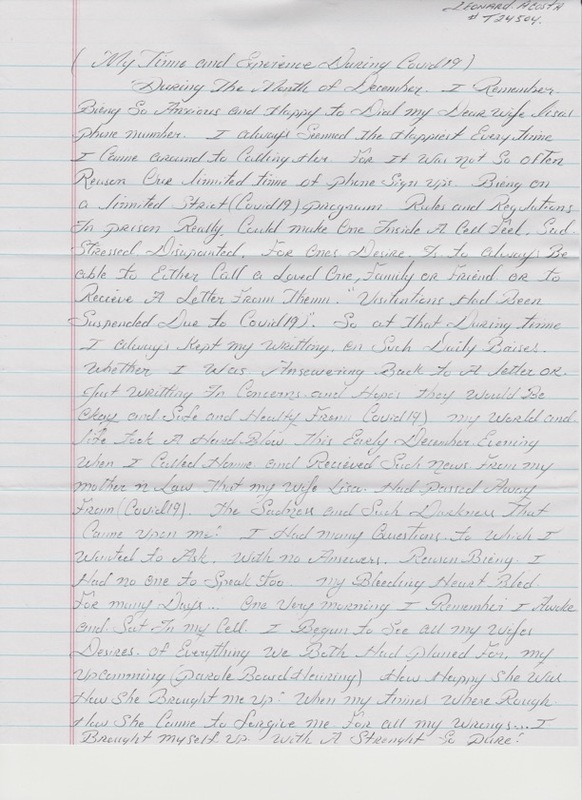 LEONARD ACOSTA
# T24504.
( "My Time and Exprience During Covid19)
"During The Month of December. I Remember
Bieng So Anxious and Happy to Dial my Dear Wife Lisas
phone number. I always Seemed The Happiest Every time
I Came around to Calling Her. For It Was not So often
Reason One limited time of phone Sign ups. Bieng on
a limited Strict (Covid19) program. Rules and Regulations
In prison Really Could make One Inside A Cell Feel, Sad
Stressed Disapointed, For Ones Desire Is to always Be
able to Either Call a Loved One, Family or Friend or to
Recieve A Letter From Them. "Visitentions Had Been
Suspended Due to Covid19)". So at that During time
I always Kept my Writting, on Such Daily Baises.
Whether I Was Answering Back to A letter or
Just Writting In Concerns and Hopes They Would Be
Okay and Safe and Healty From Covid19) my World and
life Took A Hard Blow This Early December Evening
When I Called Home and Recieved Such News From my
mother n Law That my Wife Lisa. Had Passed Away
From (Covid19). The Sadness and Such Darkness That
Came Upon me" I Had many Questions to Which I
Wanted to Ask With no Answers. Reason Bieng I
Had no one to Speak too my Bleeding Heart Bled
For many Days... One Very morning I Remember I Awoke
and Sat In my Cell. I Began to See all my Wifes
Desires of Everything We Both Had planed For, my
Upcomming (parole Board Hearing) How Happy She Was
How She Brought me Up" When my times Where Rough
How She Came to Forgive me For all my Wrongs... I
Brought myself Up With A Strenght So pure"